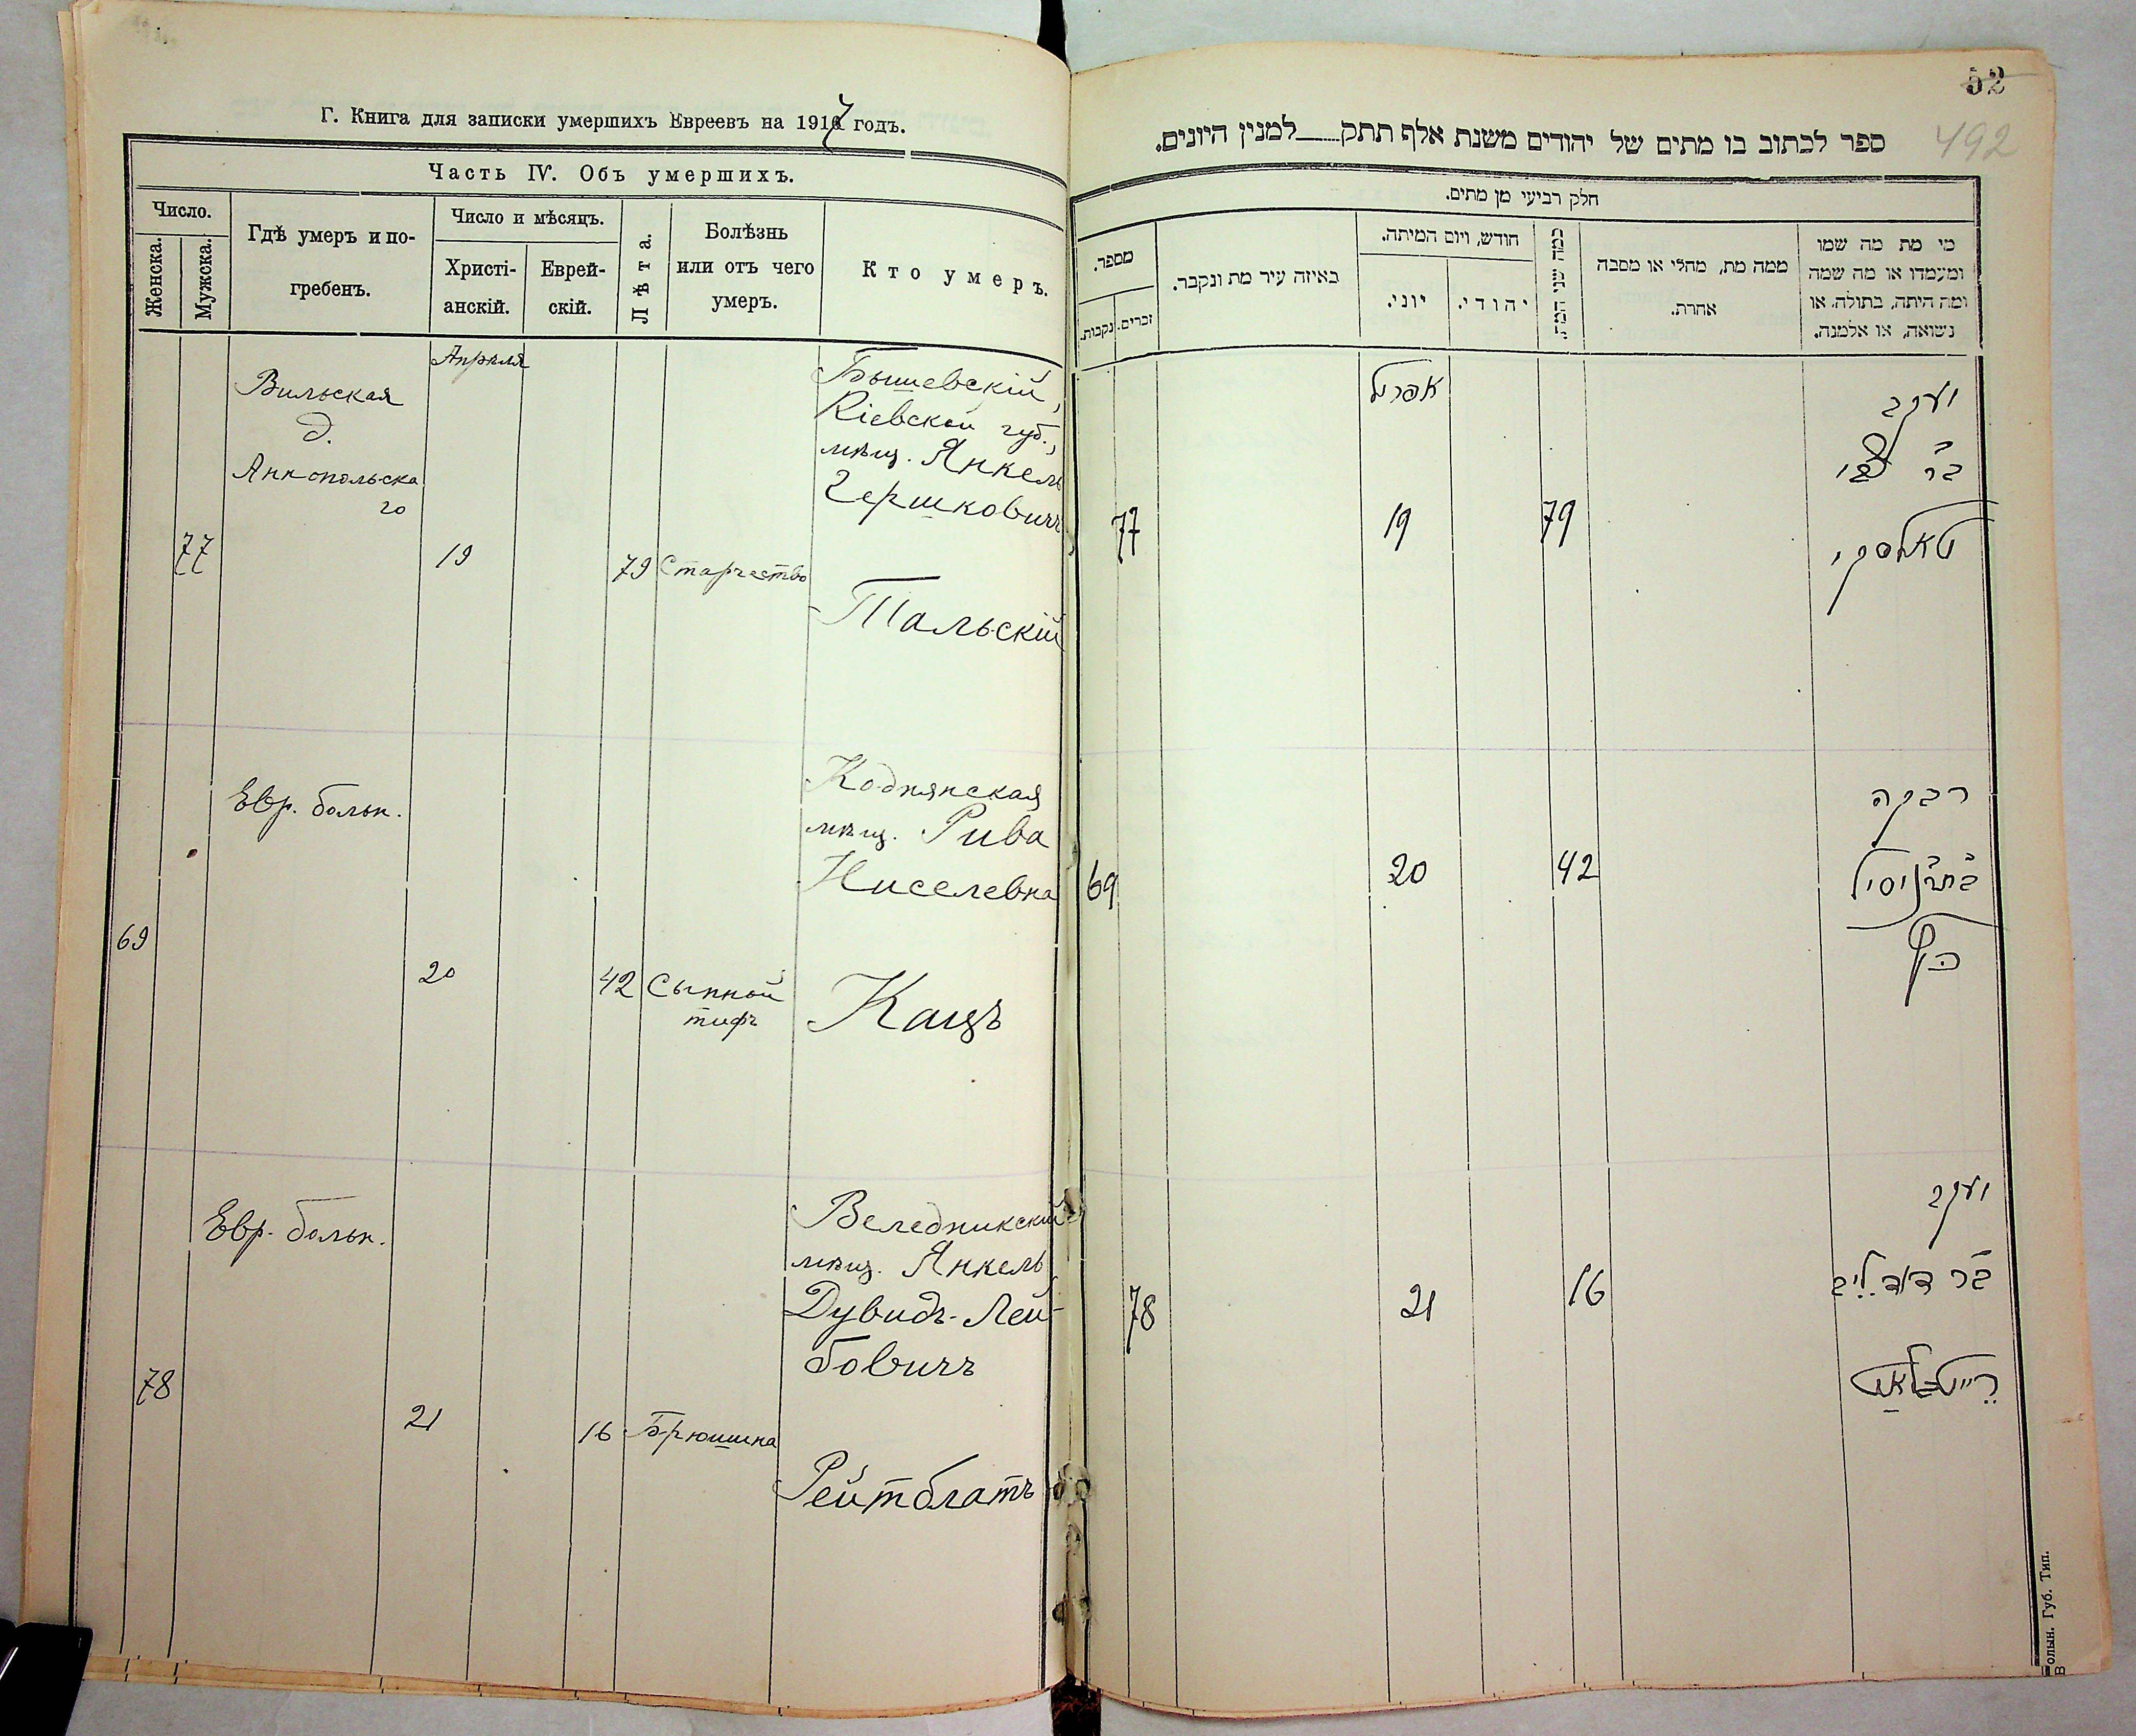 Г. Книга для записки умершихъ Евреевъ на 1917 годъ.
Часть IV. Объ умершихъ.
Число.
Женска.
Мужска.
Гдѣ умеръ и по-
гребенъ.
Число и мѣсяцъ.
Христі-
анскій.
Еврей-
скій.
Лѣта.
Болѣзнь
или отъ чего
умеръ.
Кто умеръ.
Апрѣля
Вильская
д.
Аннопольска
го
77
19
79
Старчество
Бышевскій,
Кіевской губ.,
мѣщ. Янкель
Гершковичъ
Тальскій
Евр. больн.
69
20
42
Сыпной
тифъ
Коднянская
мѣщ. Рива
Нисeлевна
Кацъ
Евр. больн.
78
21
16
Брюшна
Веледникскій
мѣщ. Янкель
Дувидъ-Лей-
бовичъ
Рейтблатъ
52
492
ספר לכתוב בו מתים של יהודים משנת אלף תתק למנין היונים.
חלק רביעי מן מתים.
מספר.
נקבות.
זכרים.
באיזה עיר מת ונקבר.
חודש, ויום המיתה.
יוני.
יהודי.
כמה שני המת.
ממה מת, מחלי או מסבה
אחרת.
מי מת מה שמו
ומעמדו או מה שמה
ומה היתה, בתולה, או
נשואה, או אלמנה.
אפריל
77
19
79
יעקב
טאלסקי
69
20
42
רבקה
כץ
78
21
16
יעקב
ב״ר דוד ליב
רייטבלאט
Волын. Губ. Тип.